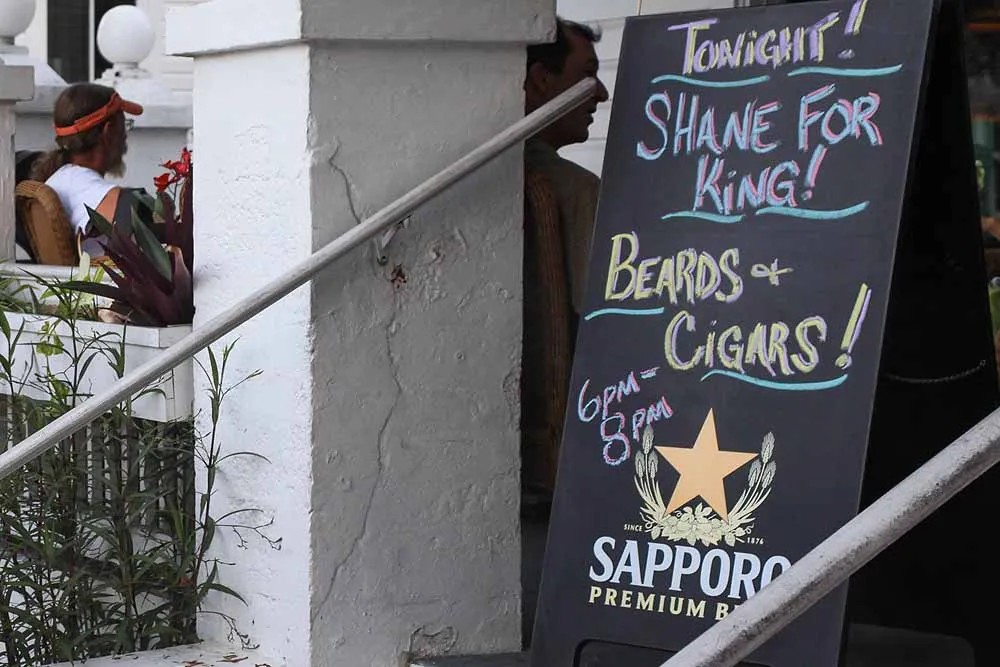 TONIGHT!
SHANE FOR
KING!
BEARDS +
CIGARS!
6PM-
8PM
SINCE 1876
SAPPORO
PREMIUM